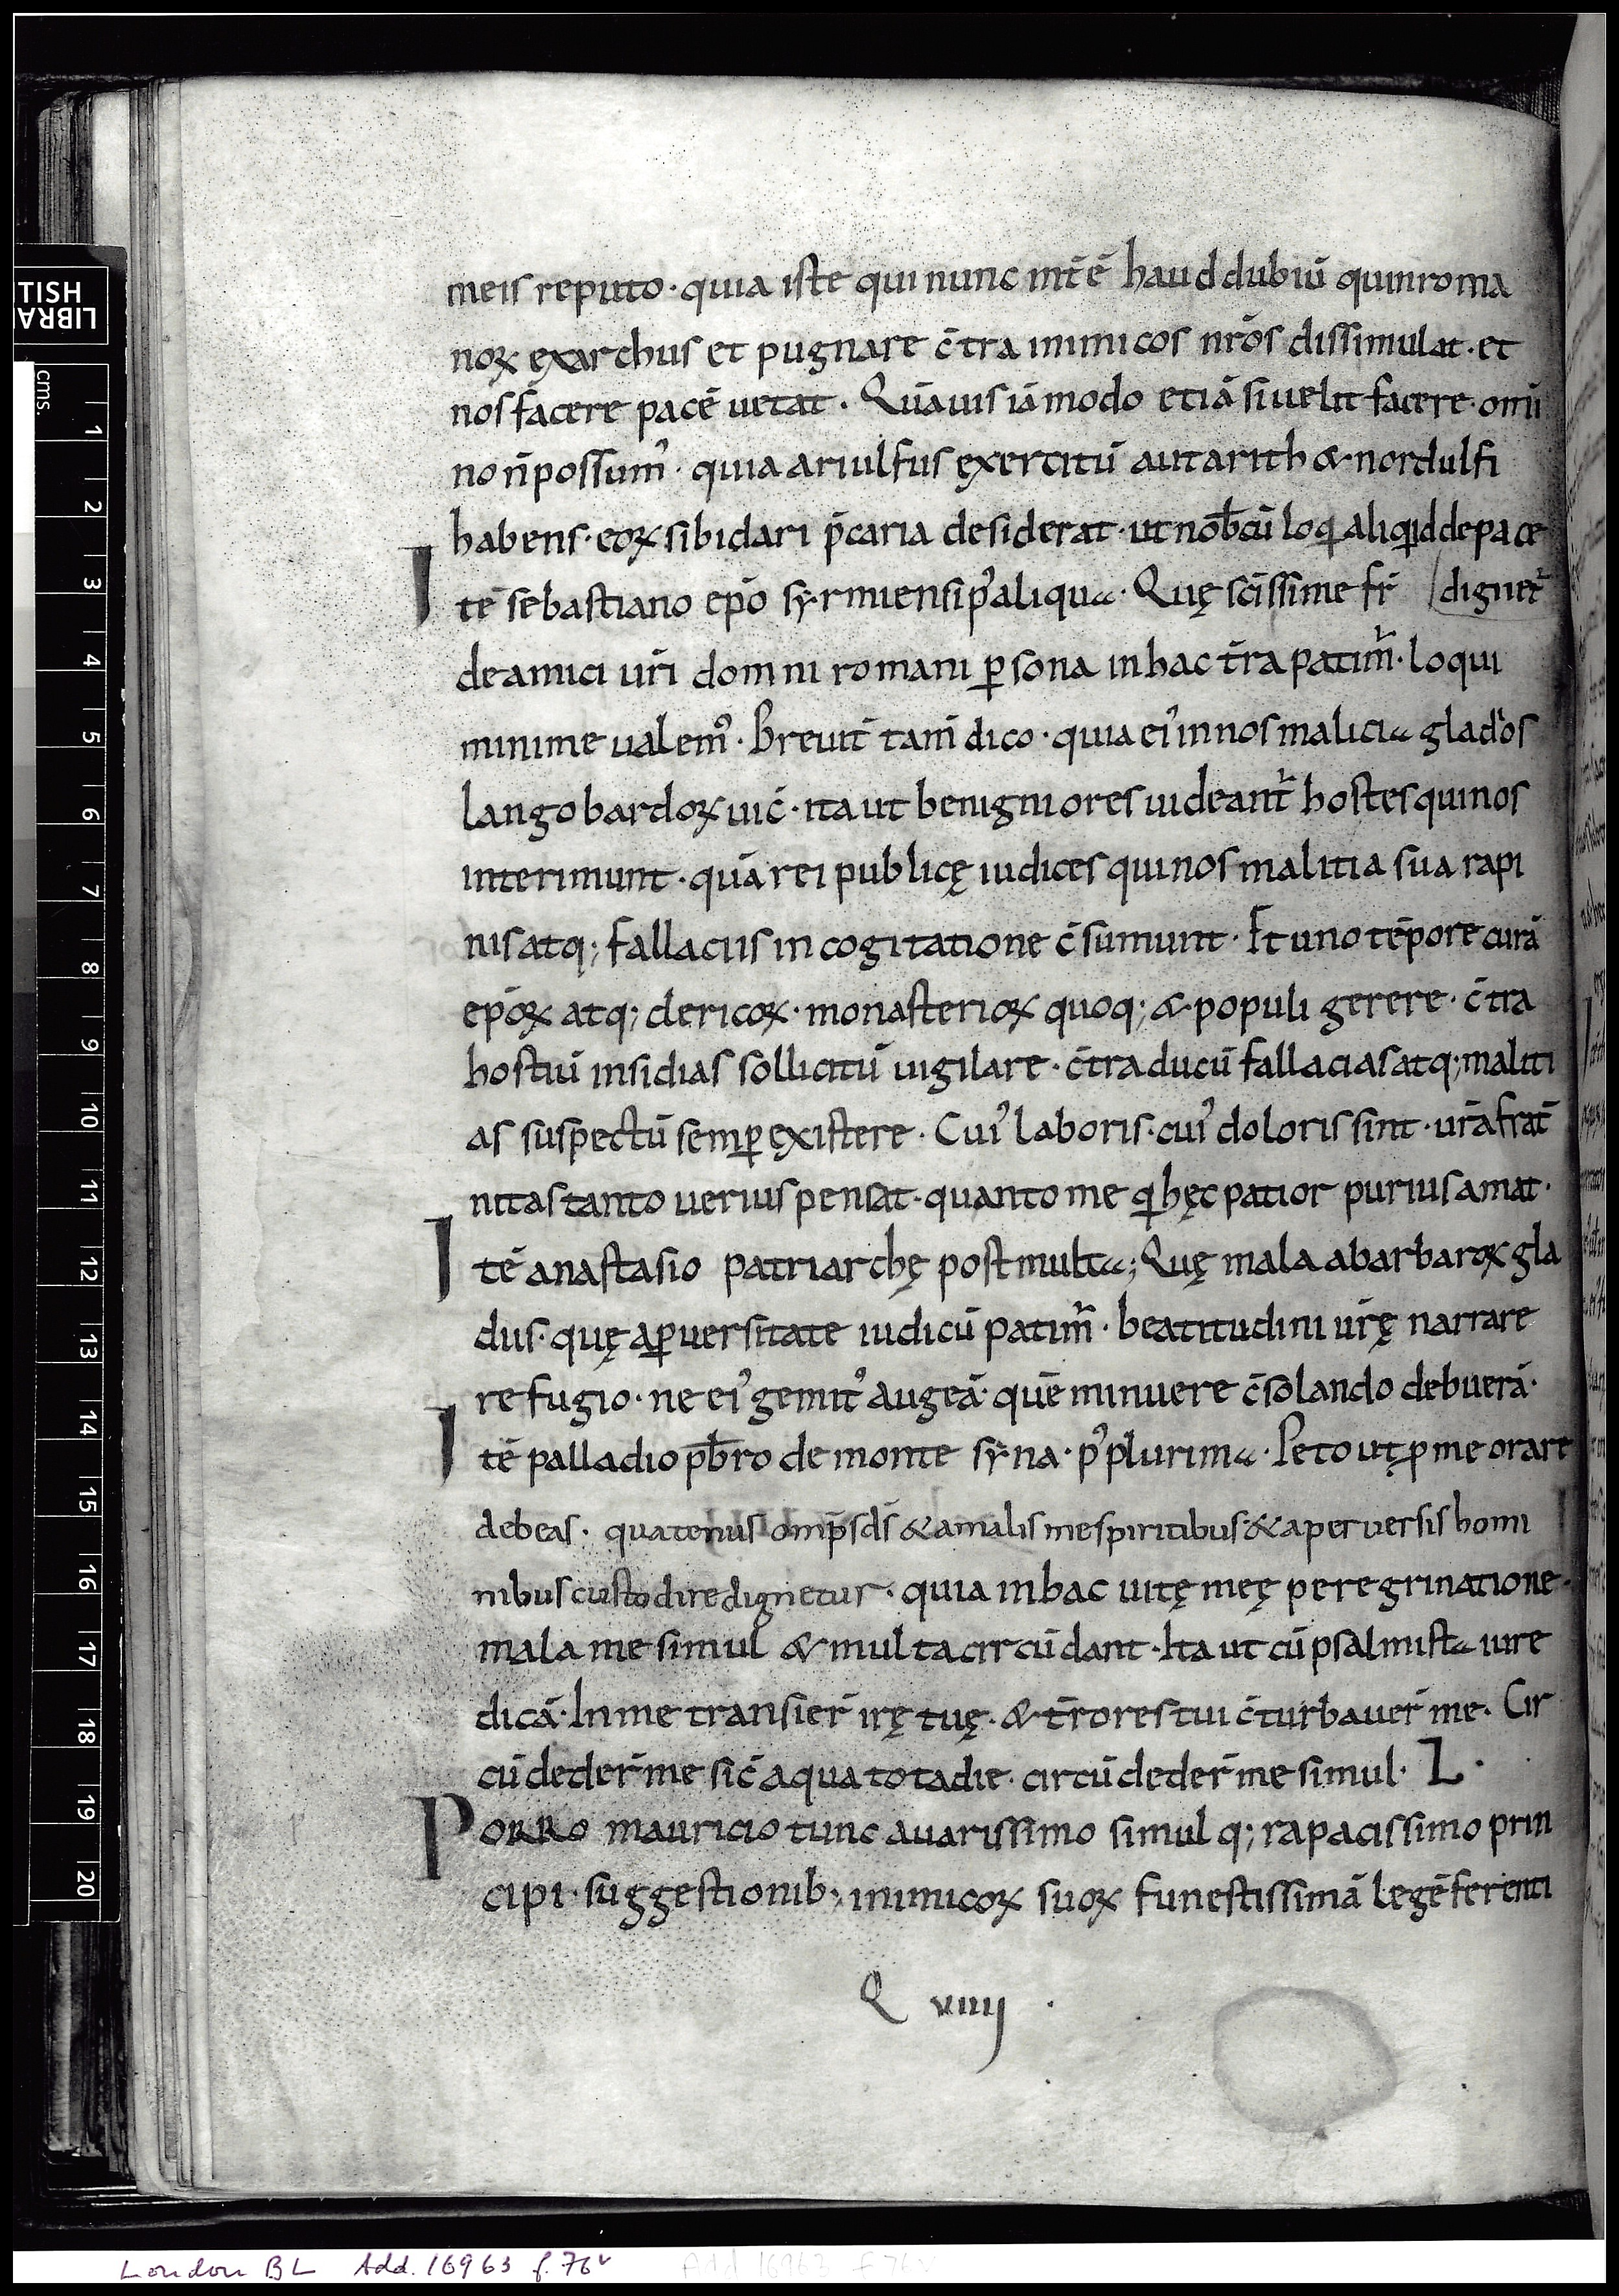 meis reputo · quia iste qui nunc int̄ ē haud dubiū quin roma
noꝝ exarchus et pugnare c̄tra inimicos nr̄os dissimulat · et
nos facere pacē uetat · Quāuis iā modo etiā si uelit facere · om̅i
no n̄ possumꝰ · quia ariulfus exercitū autarith & nordulfi
habens · eoꝝ sibi dari p̄caria desiderat · ut nob̄cū loqͥ aliqͥd de pace
Itē sebastiano ep̄o syrmiensi pꝰ aliqua · Quę sc̄issime fr̄ dignetᷣ
de amici ur̄i domni romani ꝑsona in hac t̄ra patimᷣ · loqui
minime ualemꝰ · Breuit̄ tam̄ dico · quia eiꝰ in nos malicia gladios
langobardoꝝ uic̄ · ita ut benigniores uideantᷣ hostes qui nos
interimunt · quā rei publicę iudices qui nos malitia sua rapi
nis atq; fallaciis in cogitatione c̄sumunt · Et uno tēpore curā
ep̄oꝝ atq; clericoꝝ · monasterioꝝ quoq; & populi gerere · c̄tra
hostiū insidias sollicitū uigilare · c̄tra ducū fallacias atq; maliti
as suspectū semꝑ existere · Cuiꝰ laboris · cuiꝰ doloris sint · ur̄a frat̄
nitas tanto uerius pensat · quanto me qͥ hęc patior purius amat ·
Itē anastasio patriarchę post multa ; Quę mala a barbaroꝝ gla
diis · quę a ꝑuersitate iudicū patimᷣ · beatitudini ur̄ę narrare
refugio · ne eiꝰ gemitꝰ augeā · quē minuere c̄solando debuerā ·
Itē palladio pb̄ro de monte syna · pꝰ plurima · Peto ut ꝓ me orare
debeas · quatenus omp̄s ds̄ & a malis me spiritibus & a peruersis homi
nibus custodire dignetur · quia in hac uitę meę peregrinatione ·
mala me simul & multa circūdant · Ita ut cū psalmista iure
dicā · In me transier̄ irę tuę · & t̄rores tui c̄turbauer̄ me · Cir
cūdeder̄ me sic̄ aqua tota die · circūdeder̄ me simul · L ·
PORRO mauricio tunc auarissimo simulq; rapacissimo prin
cipi · suggestionib; inimicoꝝ suoꝝ funestissimā legē ferenti
Q viiij ·
LIBRA
TISH
cms.
1
2
3
4
5
6
7
8
9
10
11
12
13
14
15
16
17
18
19
20
London BL Add. 16963 f. 76v
Add 16963 f 76v